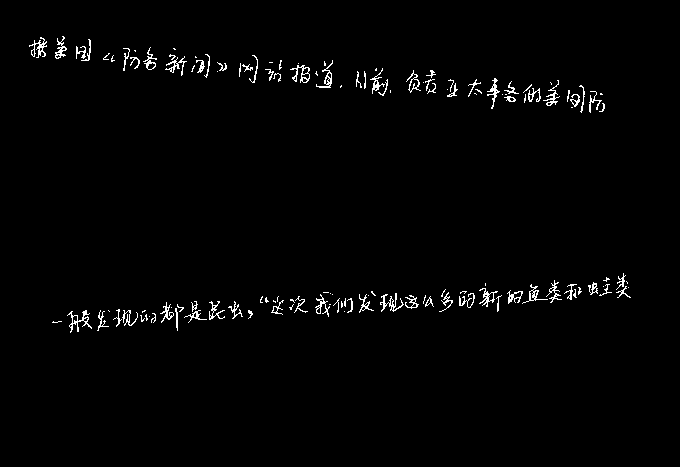 据美国《防务新闻》网站报道,日前,负责亚太事务的美国防
一般发现的都是昆虫。“这次我们发现这么多的新的鱼类和蛙类